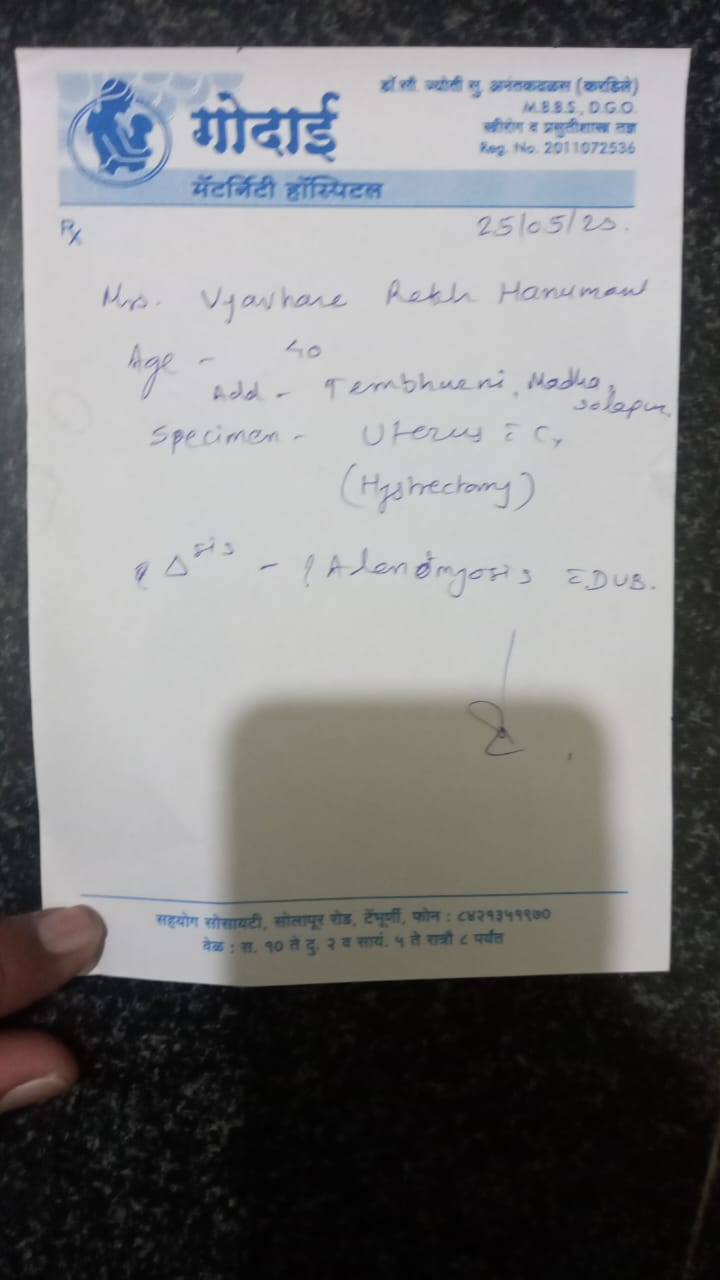 गोदाई
मॅटर्निटी हॉस्पिटल
डॉ सौ. ज्योती सु. अनंतकवळस (करडिले)
M.B.B.S., D.G.O.
स्त्रीरोग व प्रसुतीशास्त्र तज्ञ
Reg. No. 2011072536
Rx
25/05/25.
Mrs. Vyavhare Rekh Hanumant
Age - 40
Add - Tembhurni, Madha, Solapur,
Specimen - Uterus c̄ Cx
(Hystrectomy)
? Δsis - ? Adenomyosis c̄ DUB.
सहयोग सोसायटी, सोलापूर रोड, टेंभूर्णी, फोन : ८४२१३५११७०
वेळ : स. १० ते दु. २ व सायं. ५ ते रात्रौ ८ पर्यंत